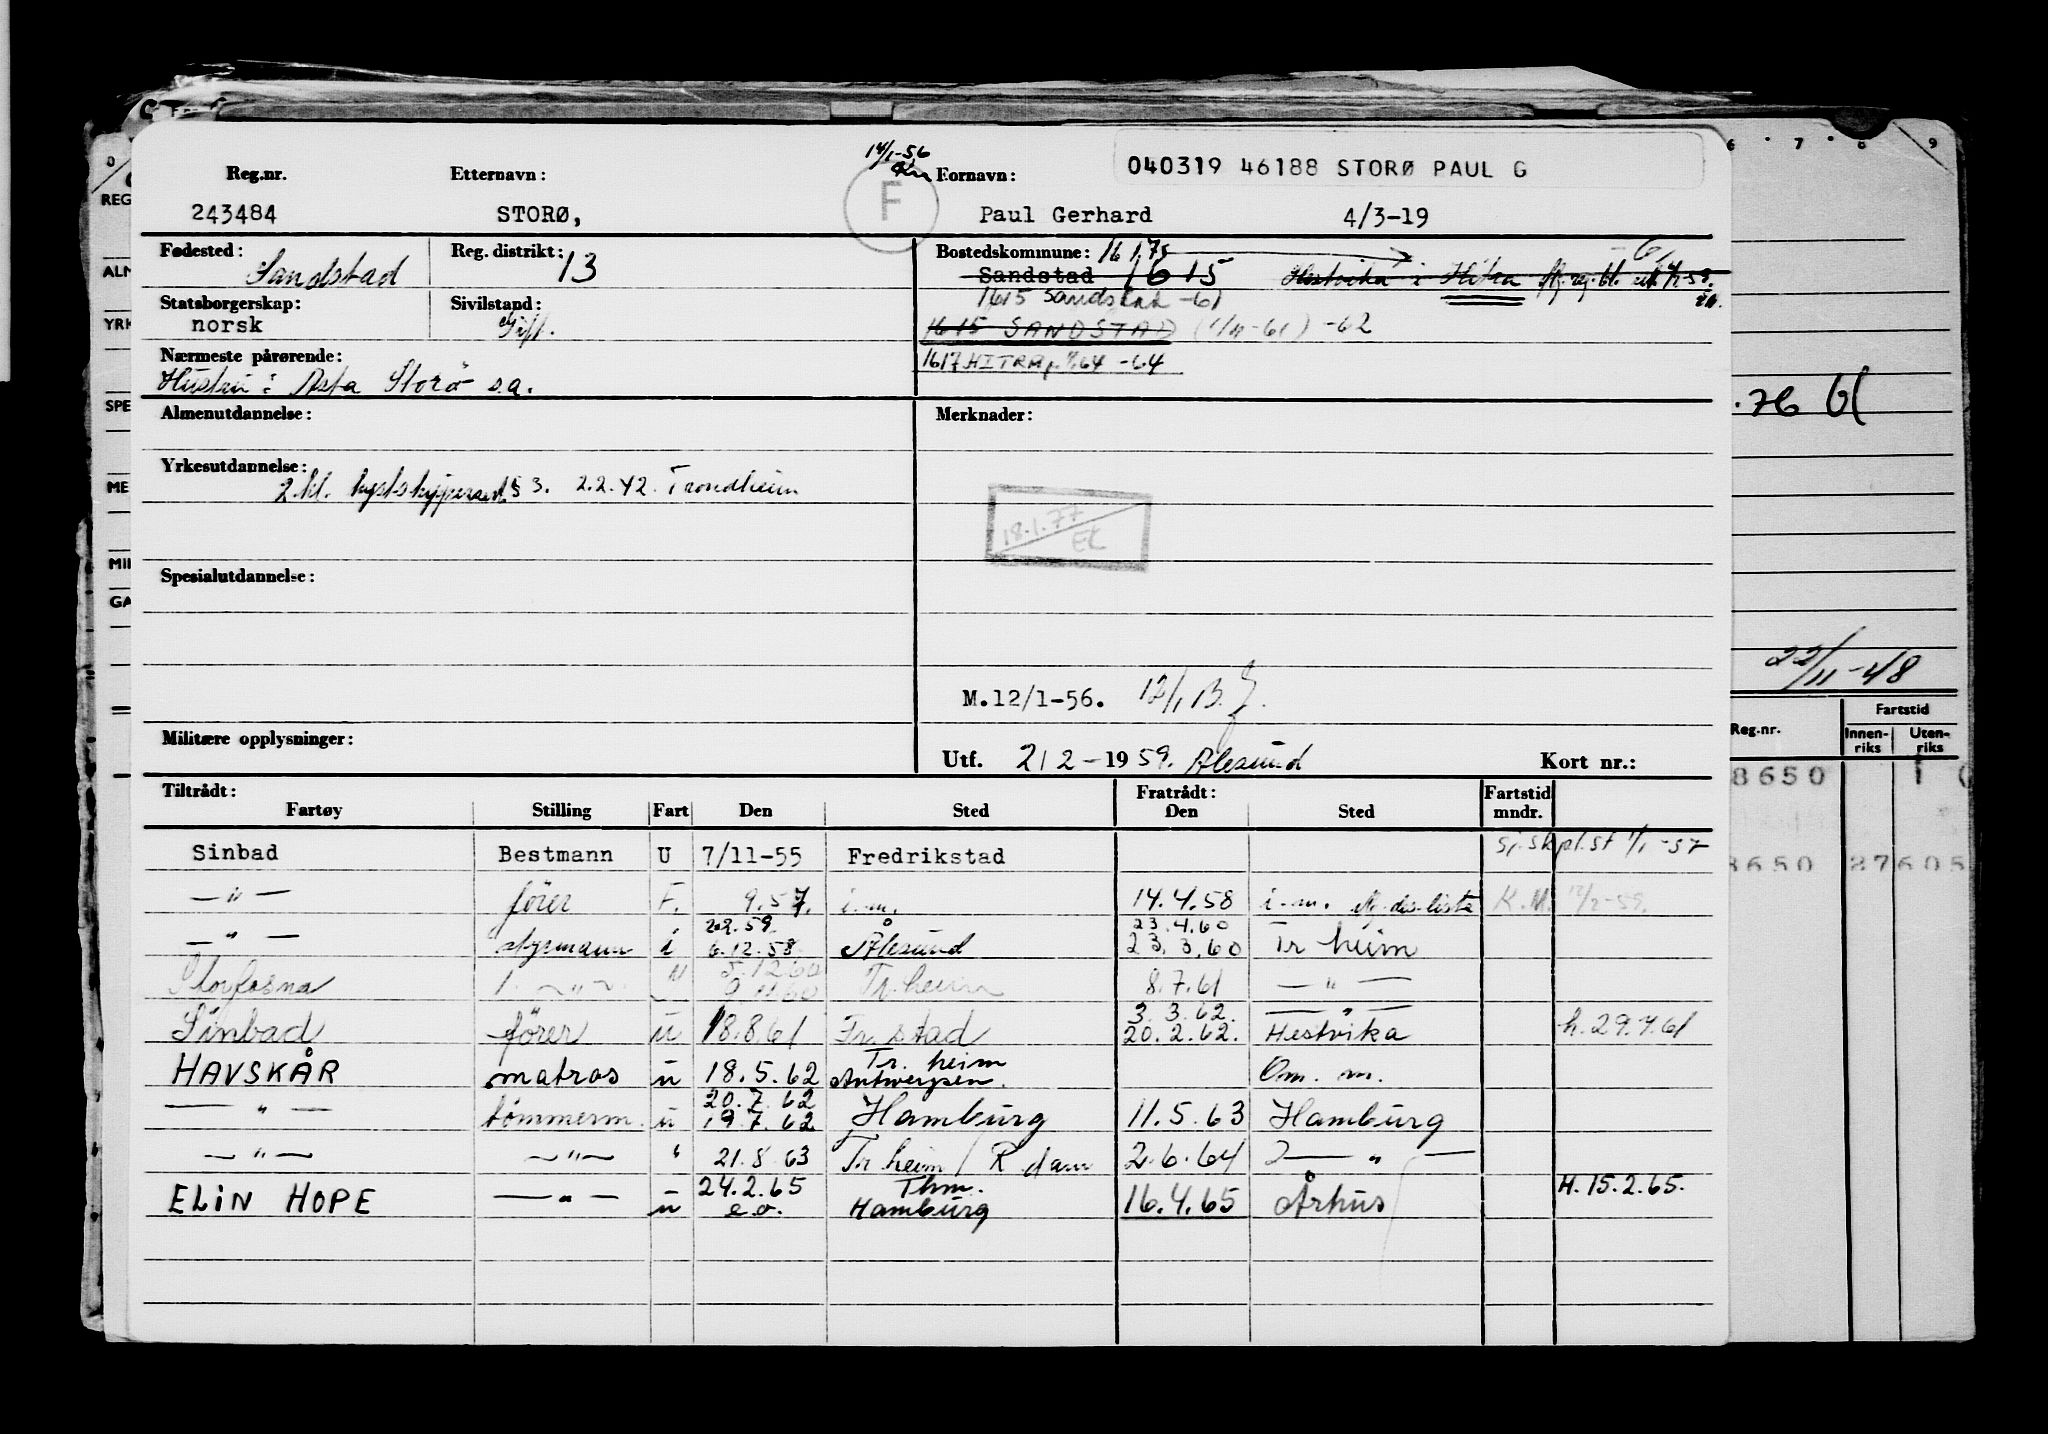 14/1-56
040319 46188 STORØ PAUL G
Reg.nr. Etternavn: F Fornavn:
243484 STORØ, Paul Gerhard 4/3-19
Fødested: Sandstad Reg. distrikt: 13 Bostedskommune: 16 1.75
Sandstad 1615 Hestvika i Hitra
Statsborgerskap: norsk Sivilstand: Gift. 1615 Sandstad -61
1615 SANDSTAD (1/11-61) -62
Nærmeste pårørende: 1617 HITRA -64
Hustru: Asta Storø s.a.
Almenutdannelse: Merknader:
Yrkesutdannelse:
2.kl. kystskippersert § 3. 2.2.42. Trondheim
18.1.77
EL
Spesialutdannelse:
M.12/1-56. 12/1 B.
Militære opplysninger: Utf. 2/2-1959. Ålesund Kort nr.:
Tiltrådt: Fratrådt: Fartstid
Fartøy Stilling Fart Den Sted Den Sted mndr.
Sinbad Bestmann U 7/11-55 Fredrikstad 1/1-57
—"— fører F. 9.57. i.m. 14.4.58 i.m. K.M.
2.2.59. 23.4.60
—"— styrmann i 6.12.58 Ålesund 23.3.60 Tr heim
5.12.60
Storfosna Tr.heim 8.7.61 —"—
3.3.62. —"—
Sinbad fører u 18.8.61 Fr.stad 20.2.62. Hestvika h. 29.7.61
Tr. heim
HAVSKÅR matros u 18.5.62 Antwerpen. Om. m.
20.7.62
—"— tømmerm. u 19.7.62 Hamburg 11.5.63 Hamburg
—"— —"— " 21.8.63 Tr heim / R dam 2.6.64 —"—
24.2.65 Thm.
ELIN HOPE —"— u e.o. Hamburg 16.4.65 Århus H. 15.2.65.
6 7 8 9
REG
ALM
YRK
SPE
ME
MIL
GA
.76
22/11-48
Reg.nr. Fartstid
Innen-riks Uten-riks
8650 1
8650 27605